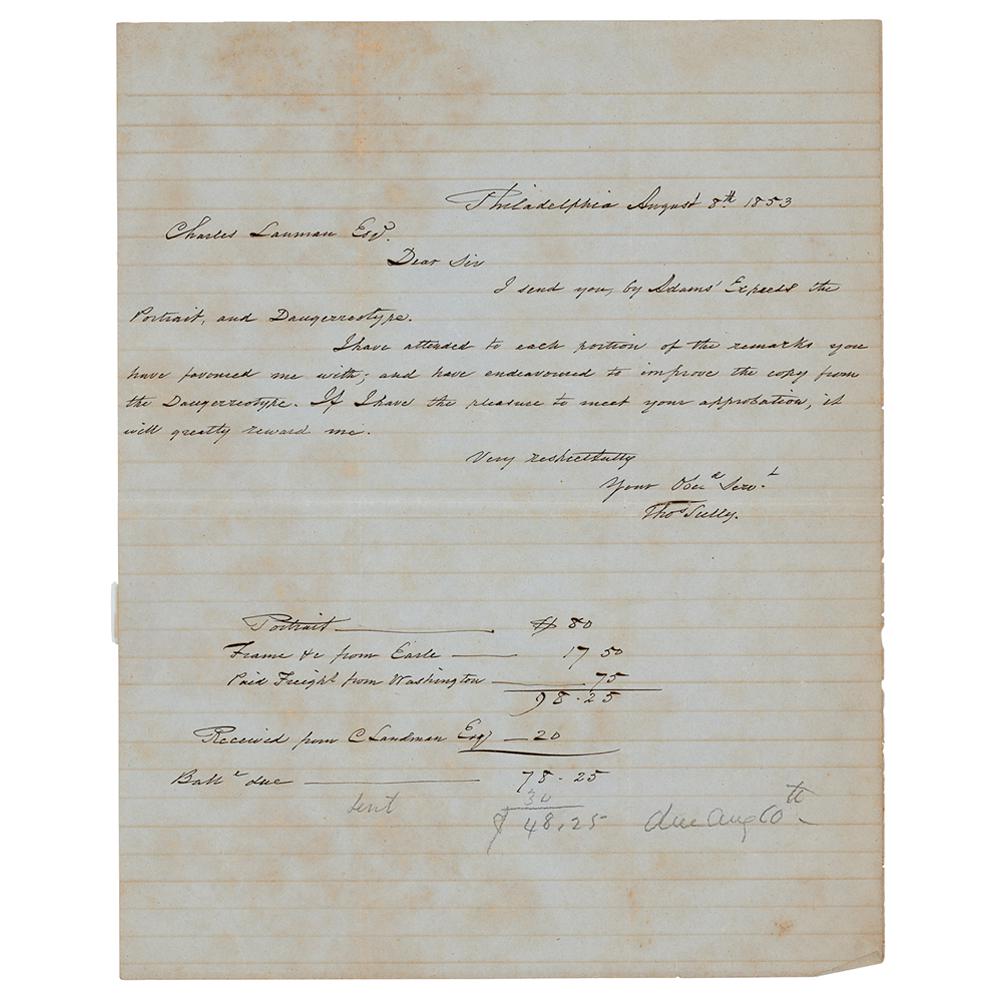 Philadelphia August 8th 1853
Charles Lanman Esqr.
Dear Sir
I send you, by Adams' Express the
Portrait, and Daugerreotype.
I have attended to each portion of the remarks you
have favoured me with; and have endeavoured to improve the copy from
the Daugerreotype. If I have the pleasure to meet your approbation, it
will greatly reward me.
Very respectfully
Your Obed Servt
Thos Sully.
Portrait $ 80
Frame &c from Earle 17 50
Paid Freight from Washington .75
98.25
Received from C Landman Esqr 20
Balle due 78.25
sent 30
$ 48.25 due Aug 10th